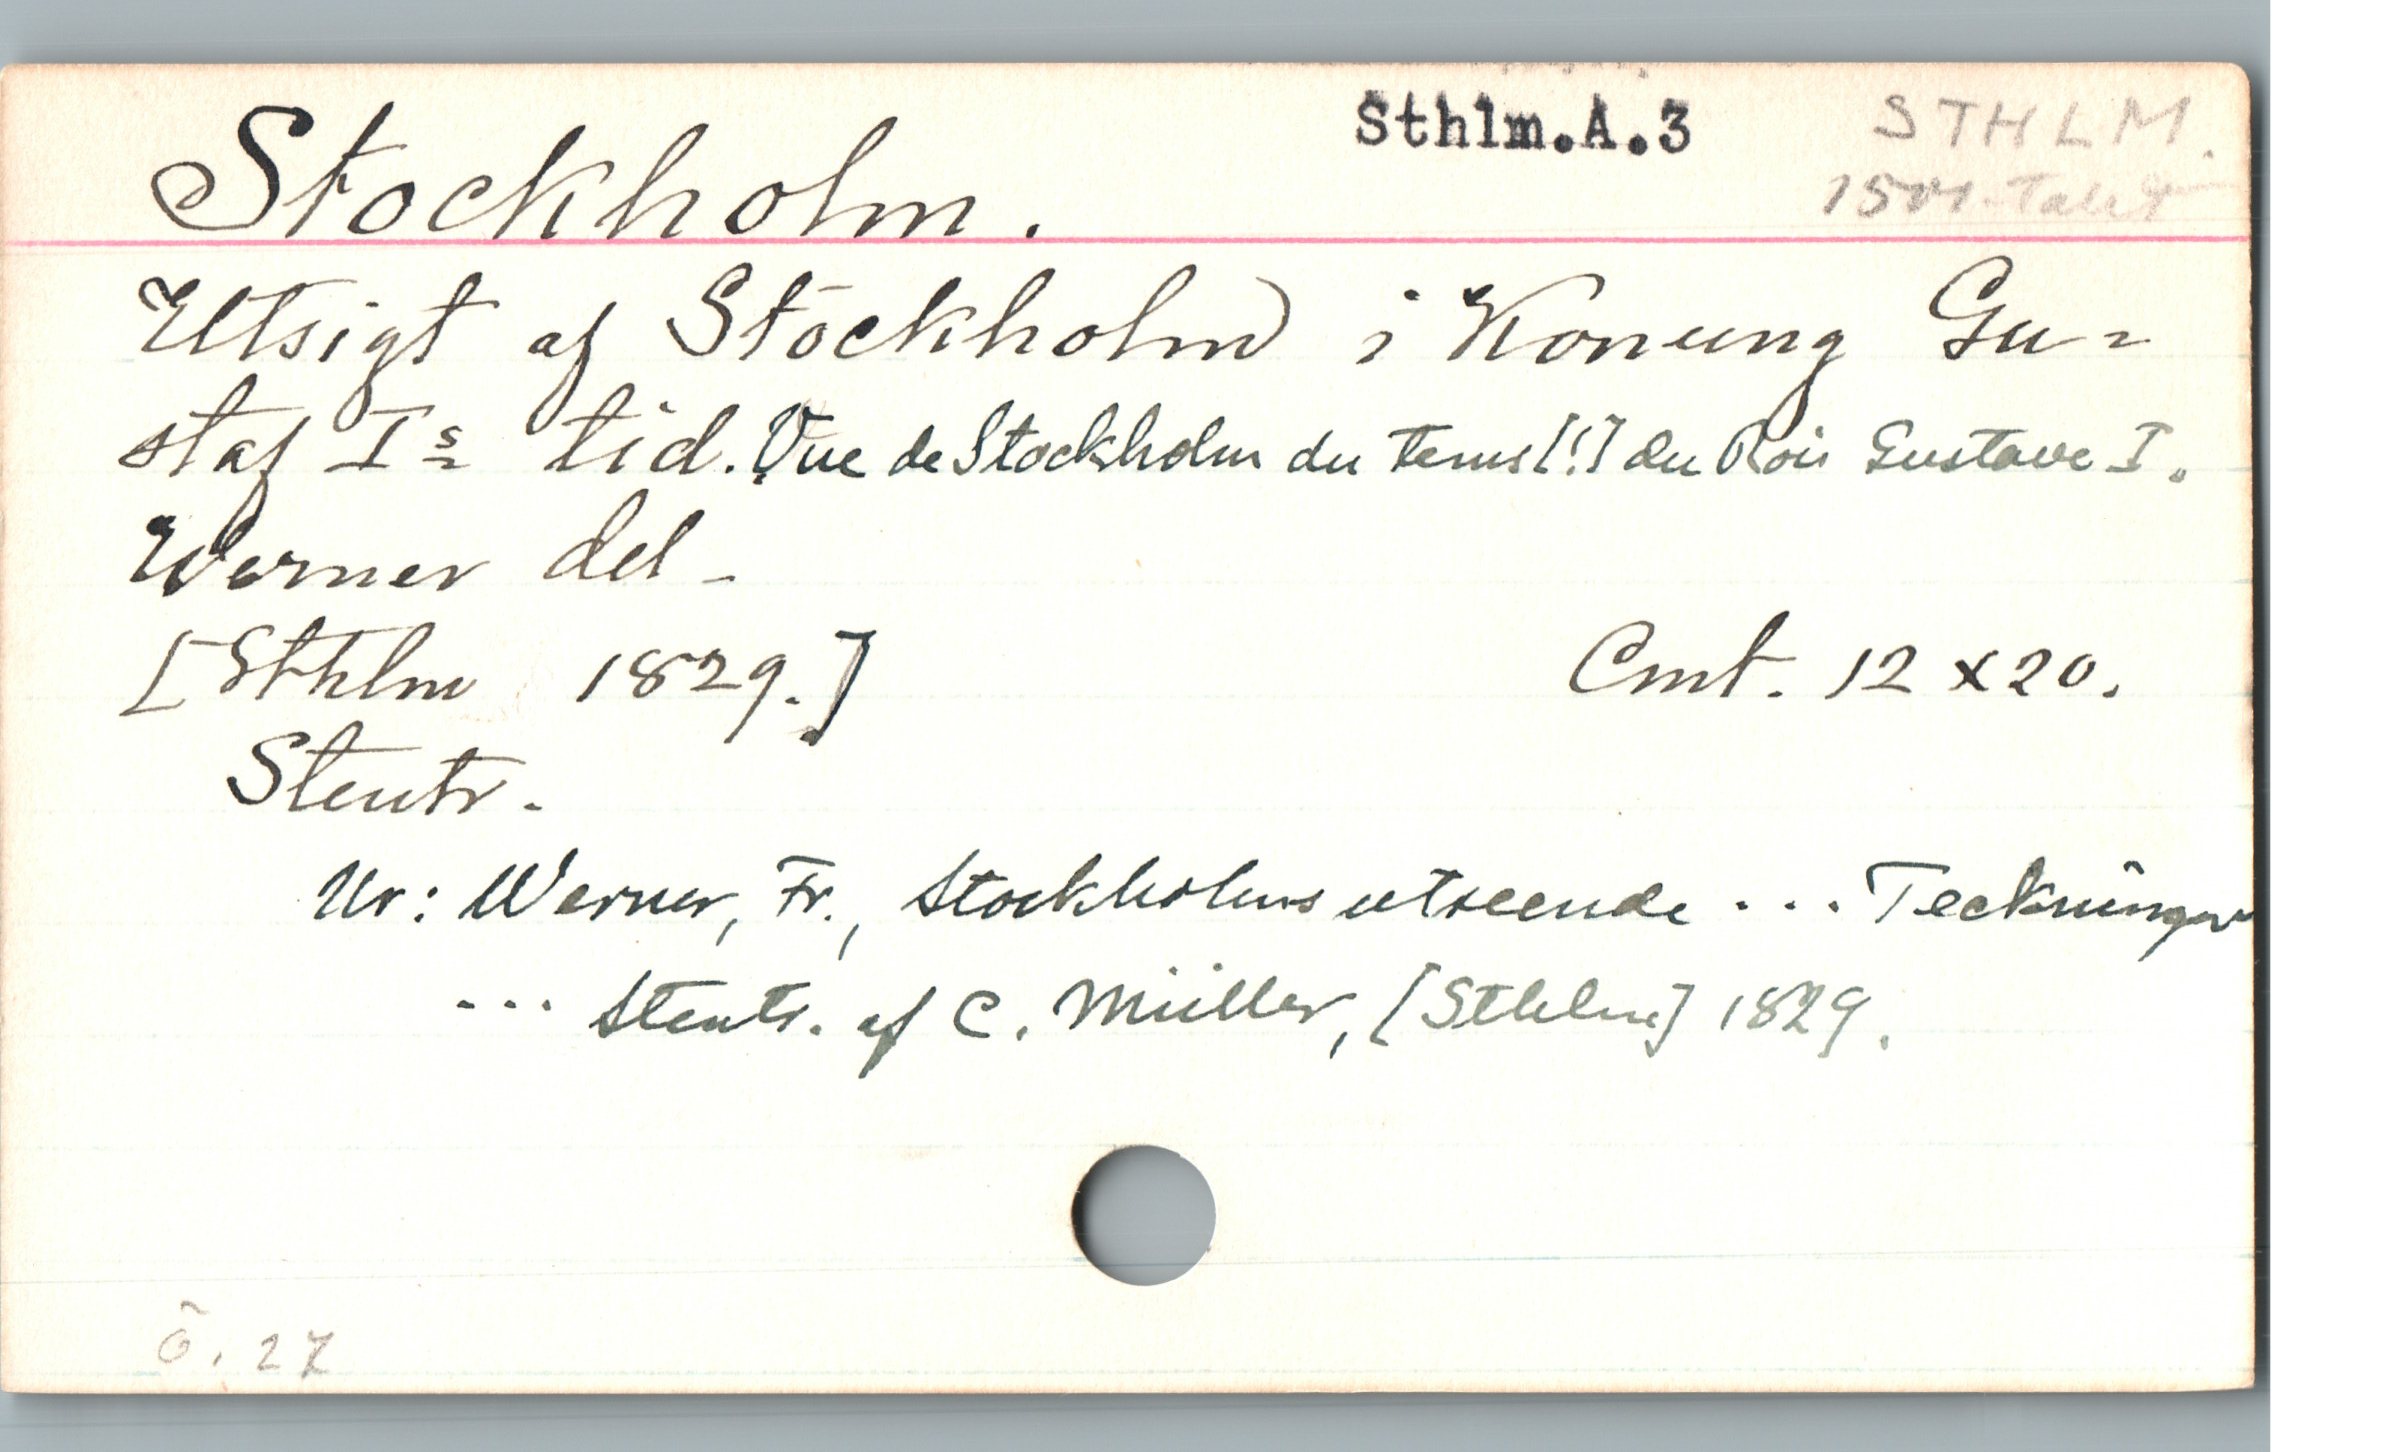 Sthlm.A.3
STHLM.
1500-Talet
Stockholm.
Utsigt af Stockholm i Konung Gu=
staf Is tid. Vue de Stockholm du tems [!] du Roi Gustave I.
Werner del.
[Sthlm 1829.] Cmt. 12 x 20.
Stentr.
Ur: Werner, Fr., Stockholms utseende ... Teckningar
... Stentr. af C. Müller, [Sthlm] 1829.
Ö. 27